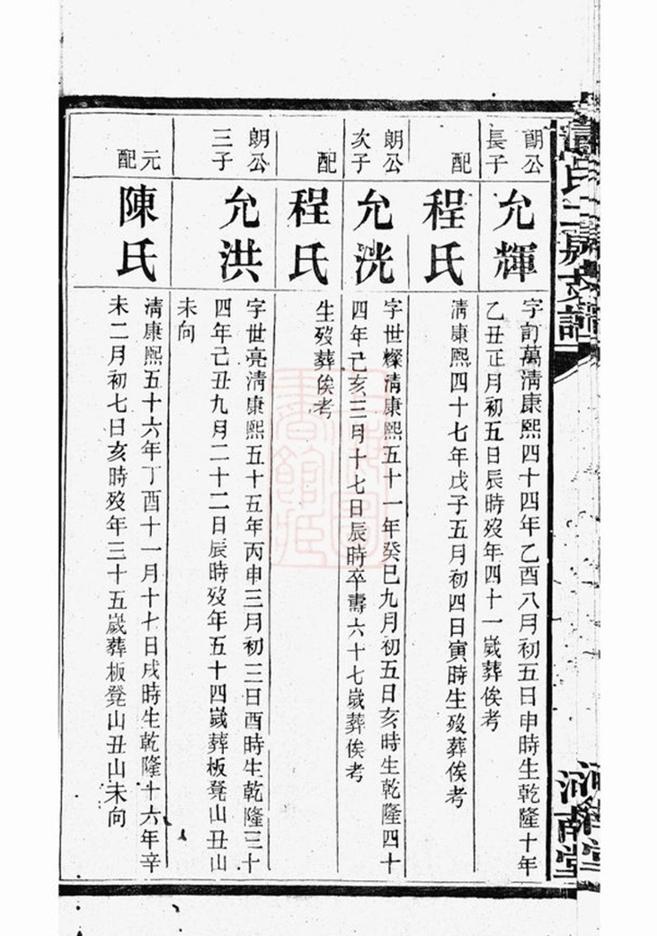 朗公
長子
允輝
字訂萬清康熙四十四年乙酉八月初五日申時生乾隆十年
乙丑正月初五日辰時歿年四十一嵗葬俟考
配
程氏
清康熙四十七年戊子五月初四日寅時生歿葬俟考
朗公
次子
允洸
字世燦清康熙五十一年癸巳九月初五日亥時生乾隆四十
四年己亥三月十七日辰時卒壽六十七嵗葬俟考
配
程氏
生歿葬俟考
朗公
三子
允洪
字世亮清康熙五十五年丙申三月初三日酉時生乾隆三十
四年己丑九月二十二日辰時歿年五十四嵗葬板凳山丑山
未向
元
配
陳氏
清康熙五十六年丁酉十一月十七日戌時生乾隆十六年辛
未二月初七日亥時歿年三十五嵗葬板凳山丑山未向
河南堂